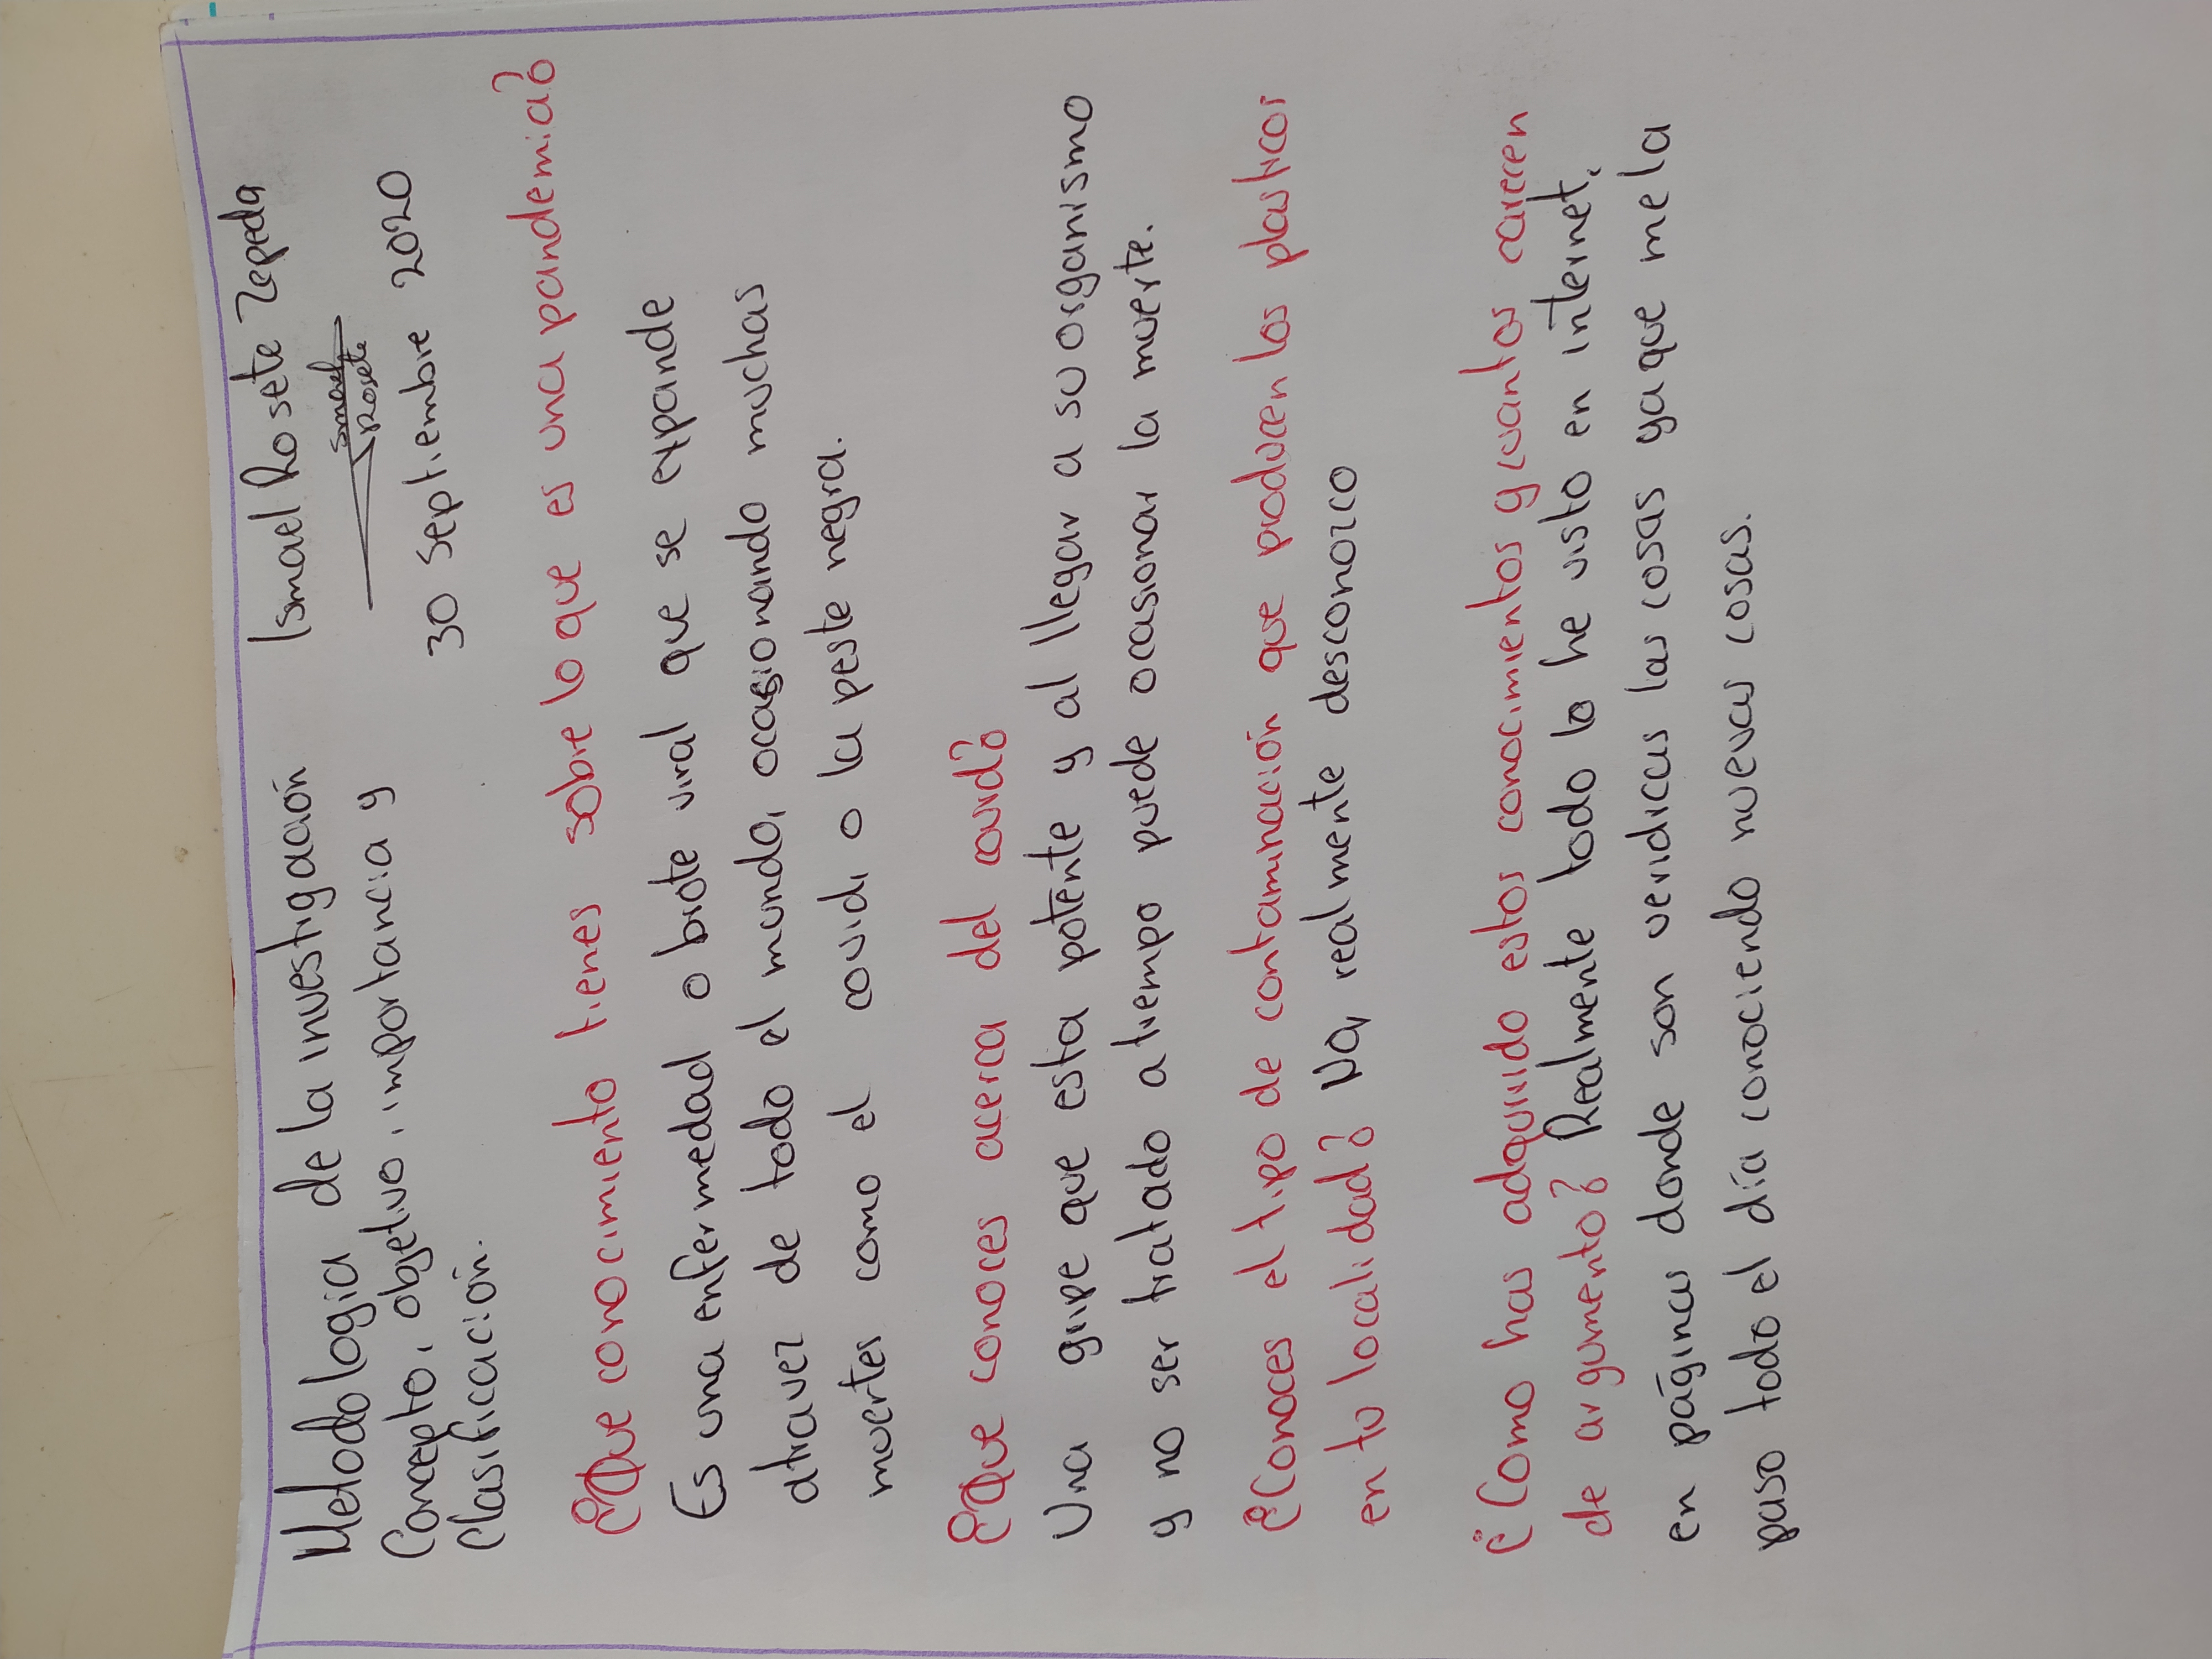 Metodologia de la investigación
Concepto, objetivo, importancia y
Clasificación.
Ismael Rosete Zepeda
Ismael
Rosete
30 Septiembre 2020
¿Que conocimiento tienes sobre lo que es una pandemia?
Es una enfermedad o brote viral que se expande
atravez de todo el mundo, ocasionando muchas
muertes como el covid, o la peste negra.
¿Que conoces acerca del covid?
Una gripe que esta potente y al llegar a su organismo
y no ser tratado a tiempo puede ocasionar la muerte.
¿Conoces el tipo de contaminación que producen los plasticos
en tu localidad? No, realmente desconozco
¿Como has adquirido estos conocimientos y cuantos carecen
de argumento? Realmente todo lo he visto en internet,
en páginas donde son veridicas las cosas ya que me la
paso todo el día conociendo nuevas cosas.